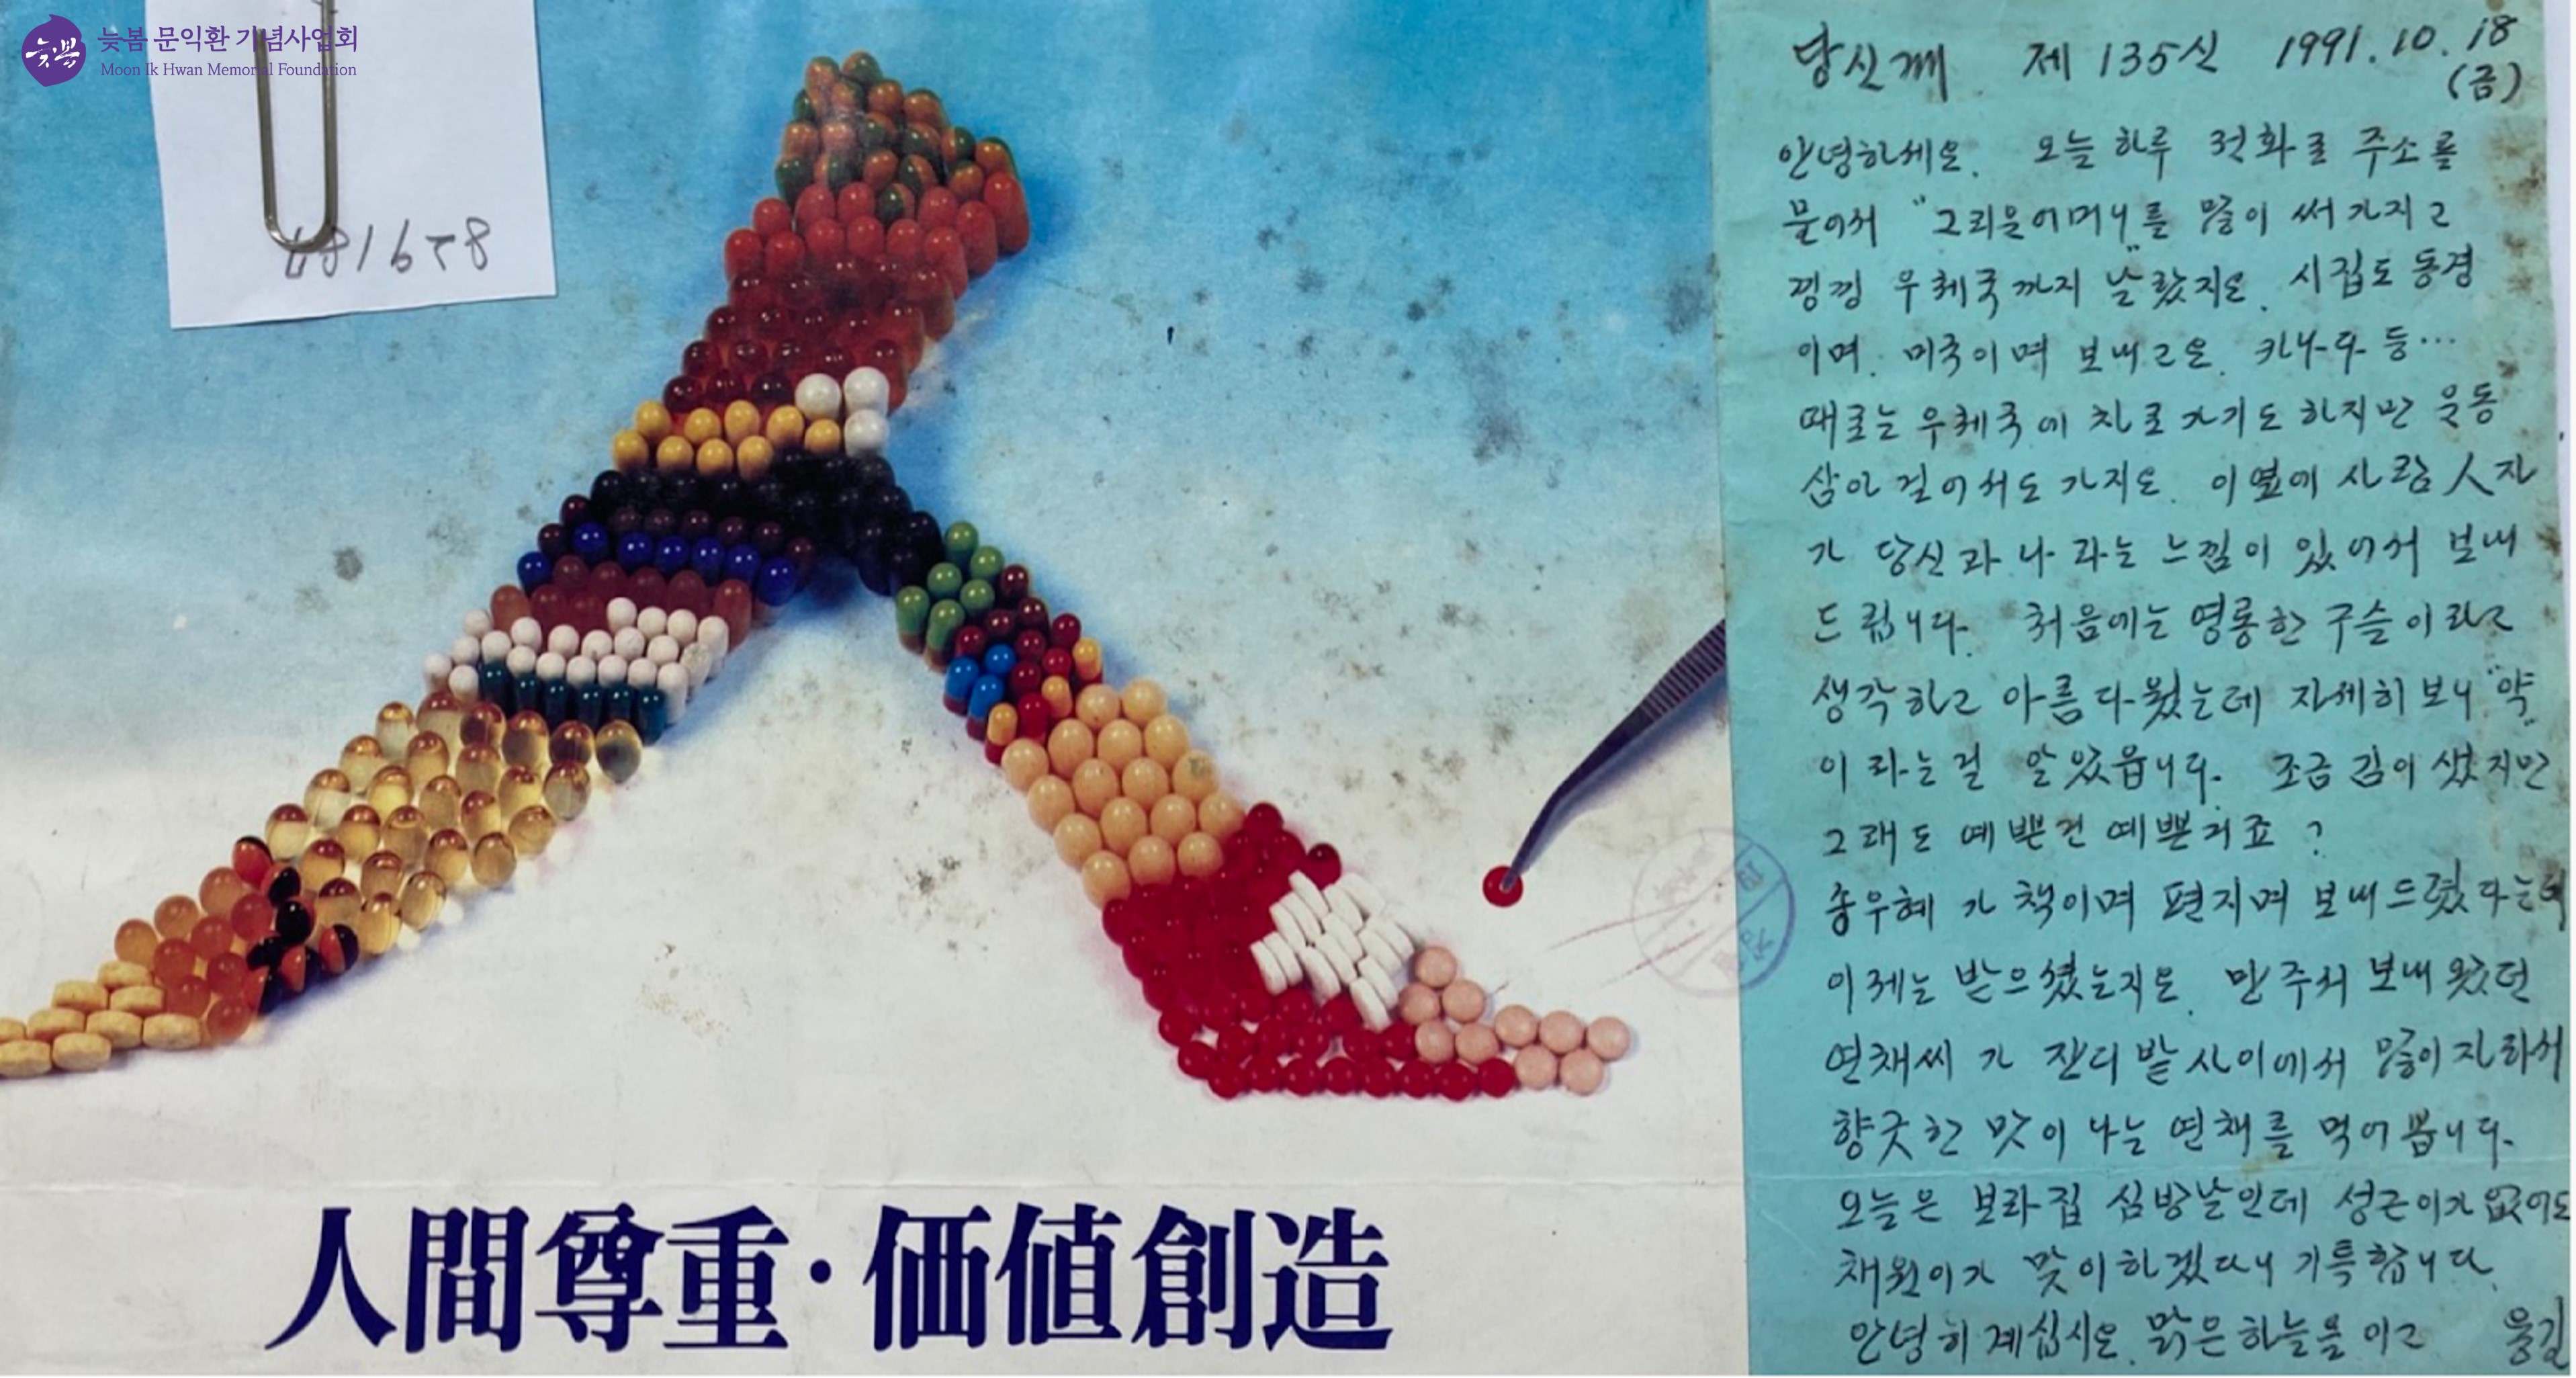 늦봄 문익환 기념사업회
Moon Ik Hwan Memorial Foundation
人間尊重·価値創造
당신께 제 135신 1991. 10. 18
(금)
안녕하세요. 오늘 하루 전화로 주소를
물어서 "그리운어머니"를 많이 써 가지고
낑낑 우체국까지 날랐지요. 시집도 동경
이며. 미국이며 보내고요. 카나다 등…
때로는 우체국에 차로 가기도 하지만 운동
삼아 걸어서도 가지요. 이 옆에 사람 人자
가 당신과 나 라는 느낌이 있어서 보내
드립니다. 처음에는 영롱한 구슬이라고
생각하고 아름다웠는데 자세히 보니 "약"
이라는걸 알았읍니다. 조금 김이 샜지만
그래도 예쁜건 예쁜거죠?
송우혜가 책이며 편지며 보내드렸다는데
이제는 받으셨는지요. 만주서 보내왔던
연채씨가 잔디밭 사이에서 많이 자라서
향긋한 맛이 나는 연채를 먹어 봅니다.
오늘은 보라집 심방날인데 성근이가 없어도
채원이가 맞이하겠다니 기특합니다.
안녕히 계십시오. 맑은 하늘을 이고 용길